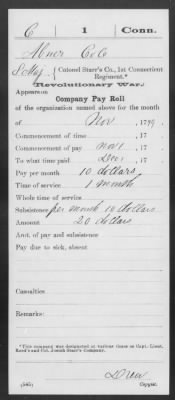 C | 1 | Conn.
Abner Cole
Colonel Starr's Co., 1st Connecticut
Regiment.*
Revolutionary War.
Appears on
Company Pay Roll
of the organization named above for the month
of Nov, 1779.
Commencement of time, 17
Commencement of pay Nov 1, 17
To what time paid Decr, 17
Pay per month 10 dollars
Time of service 1 month
Whole time of service
Subsistence per month 10 dollars
Amount 20 dollars
Amt. of pay and subsistence
Pay due to sick, absent
Casualties
Remarks:
*This company was designated at various times as Capt. Lieut.
Reed's and Col. Josiah Starr's Company.
Drew
(545) Copyist.